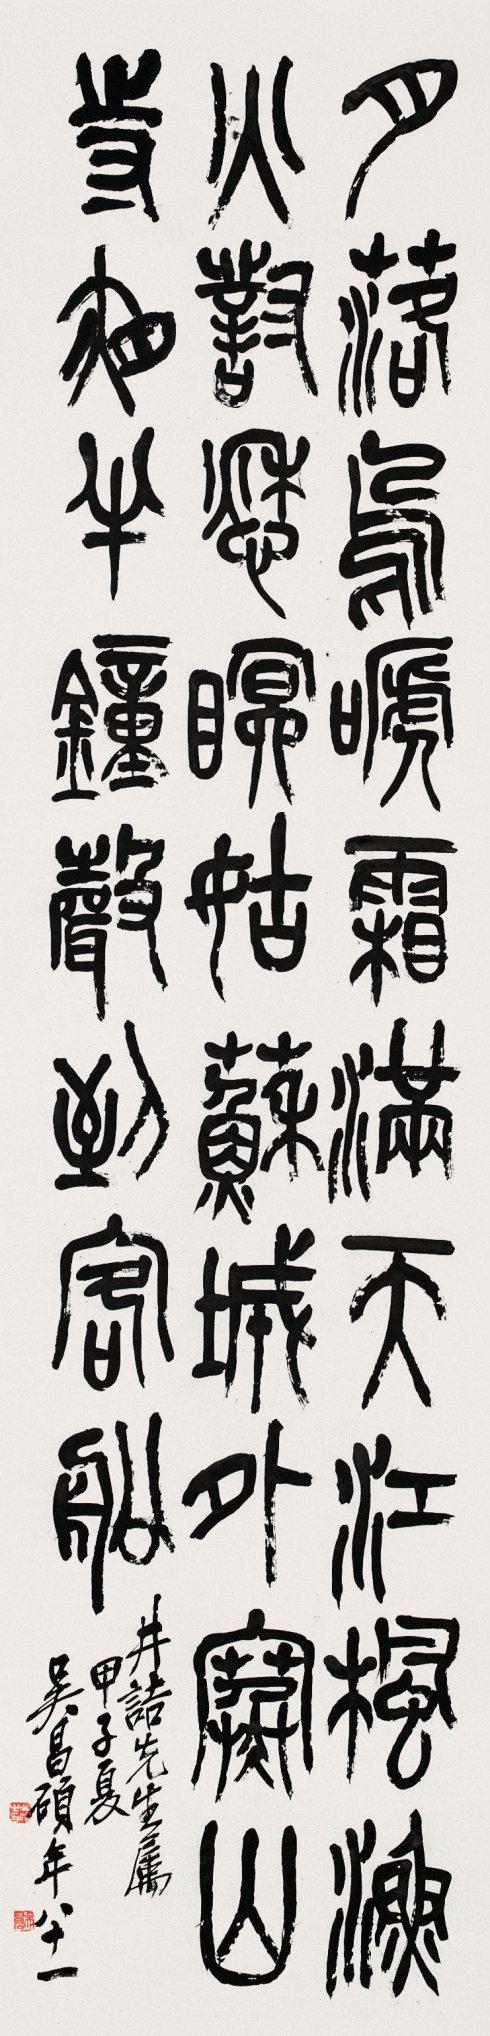 月落烏嗁霜滿天江楓漁
火對愁眠姑蘇城外寒山
寺夜半鐘聲到客船
井詰先生屬
甲子夏
吳昌碩年八十一